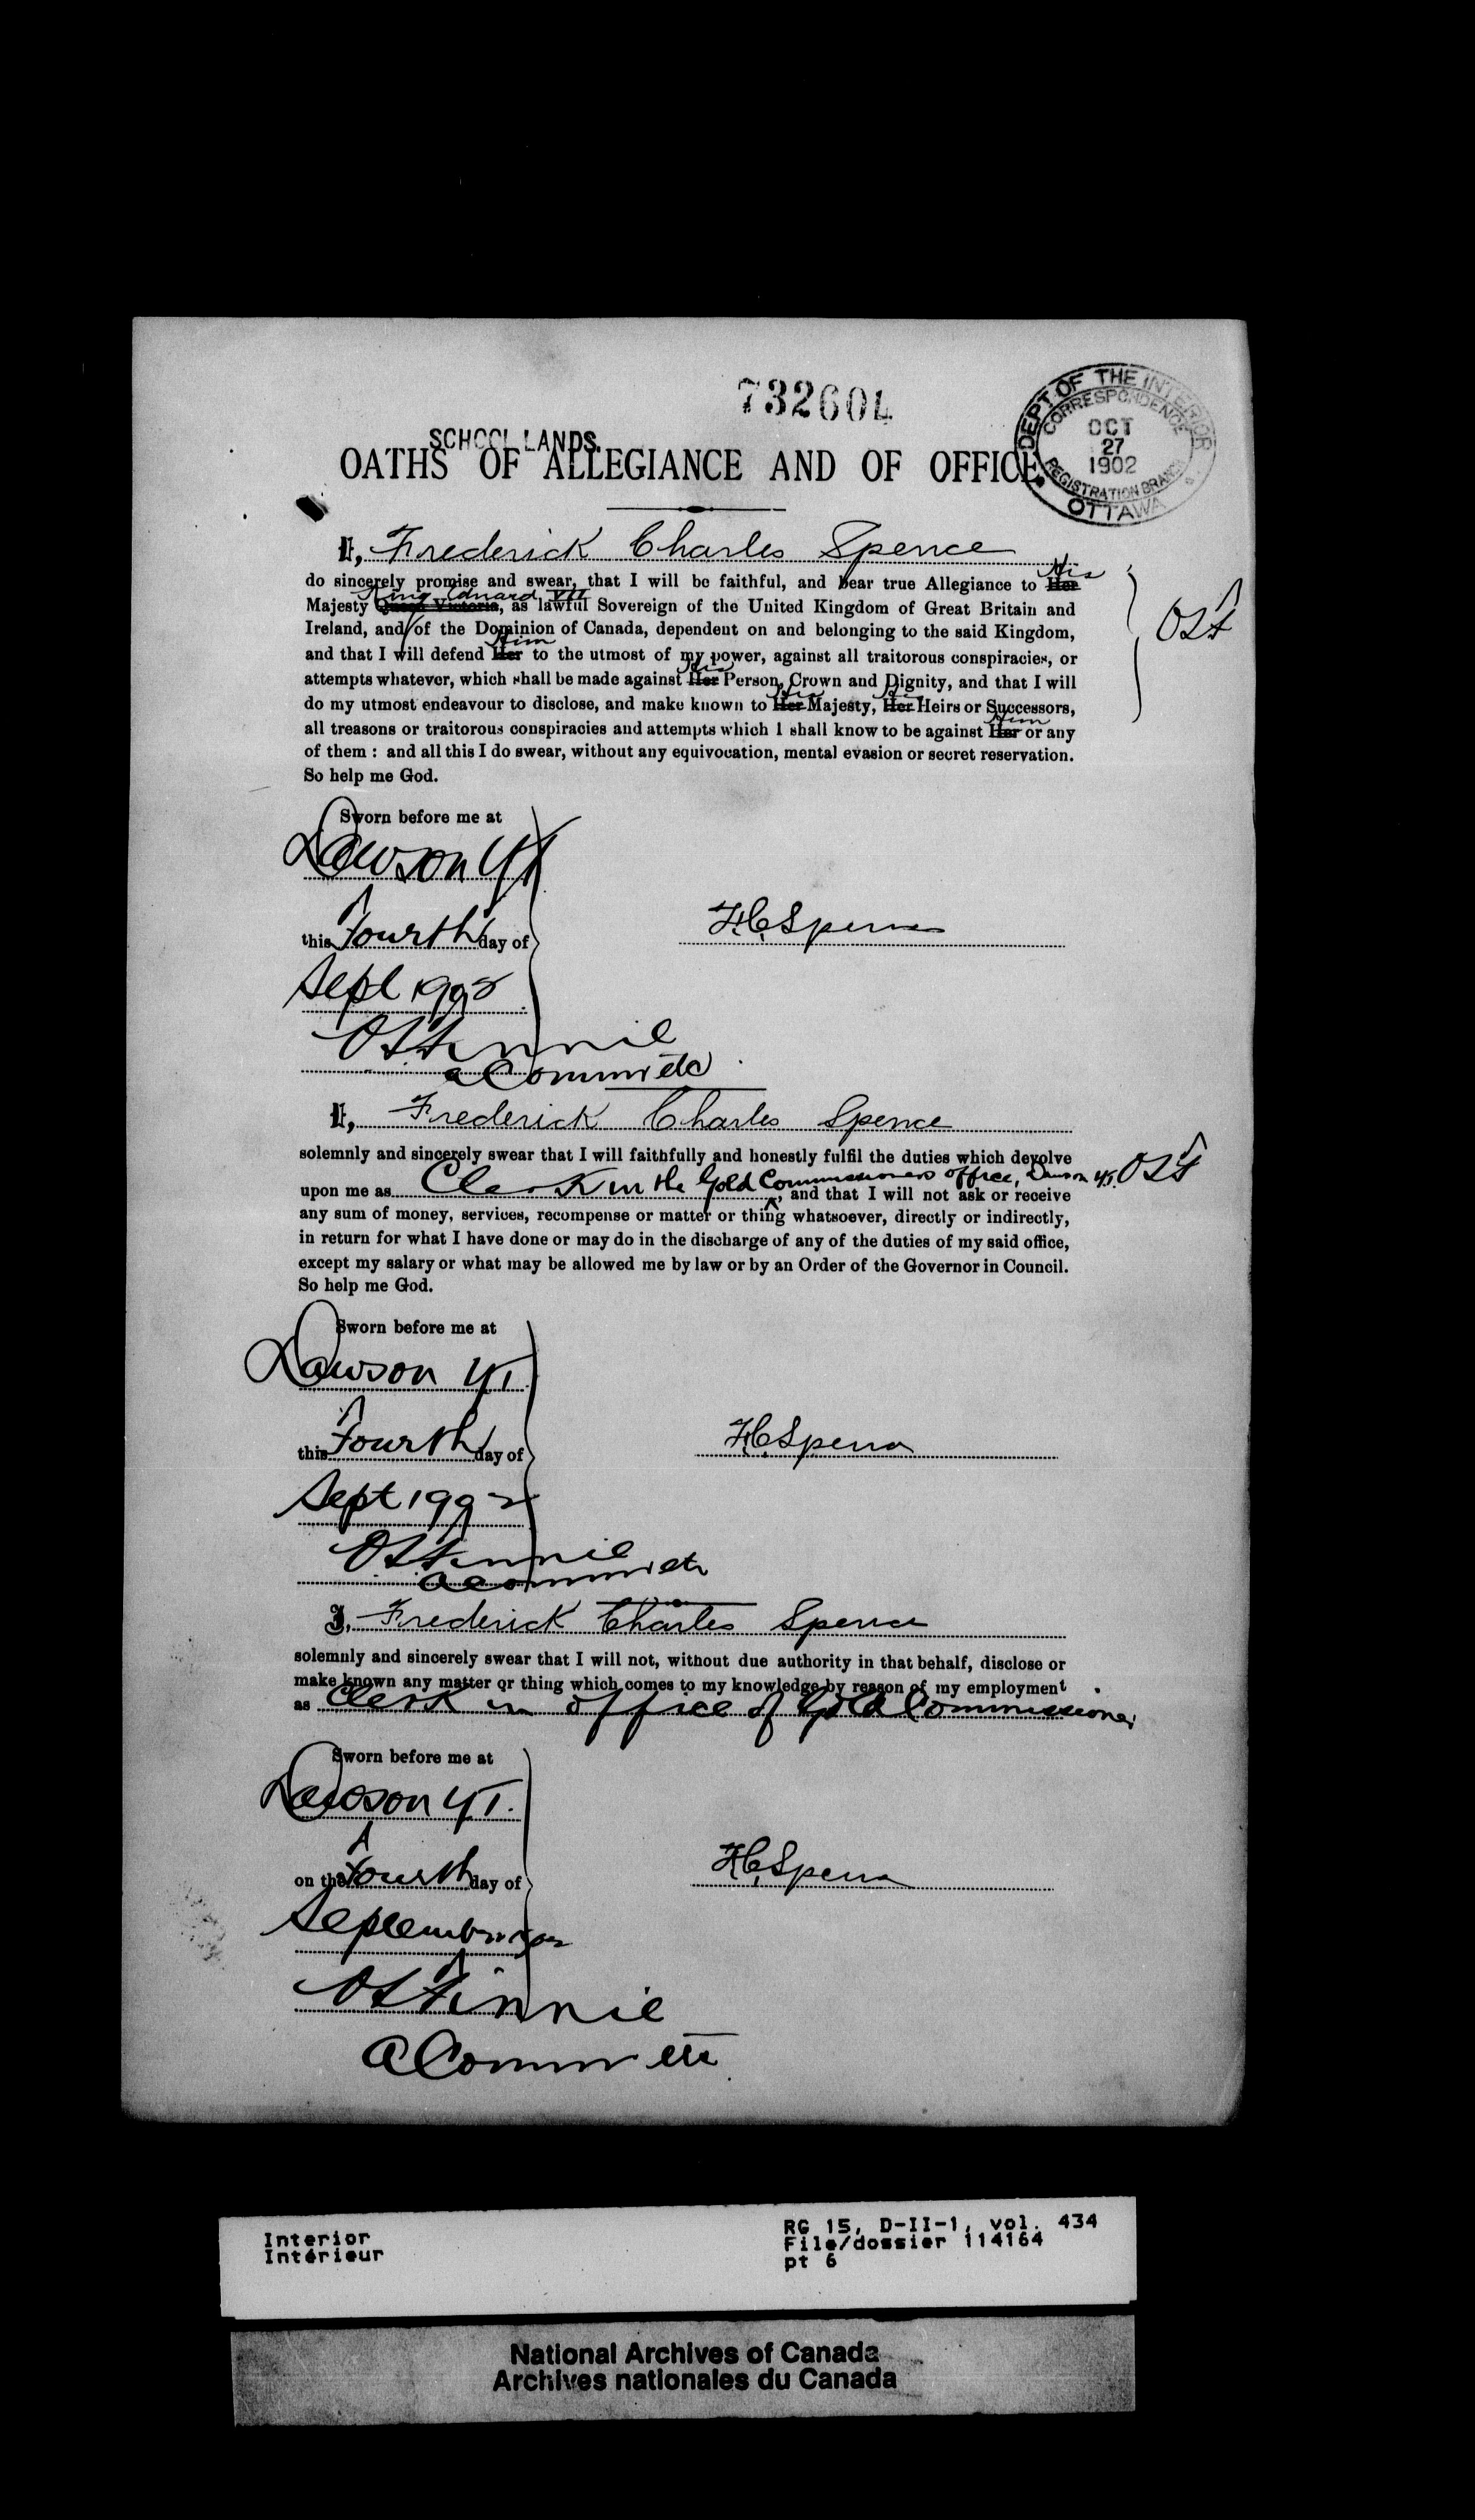 732604
SCHOOL LANDS.
DEPT. OF THE INTERIOR
CORRESPONDENCE
OCT
27
1902
REGISTRATION BRANCH
OTTAWA
OATHS OF ALLEGIANCE AND OF OFFICE.
I, Frederick Charles Spence
do sincerely promise and swear, that I will be faithful, and bear true Allegiance to Her His
Majesty Queen Victoria King Edward VII, as lawful Sovereign of the United Kingdom of Great Britain and
Ireland, and of the Dominion of Canada, dependent on and belonging to the said Kingdom,
and that I will defend Her Him to the utmost of my power, against all traitorous conspiracies, or
attempts whatever, which shall be made against Her His Person, Crown and Dignity, and that I will
do my utmost endeavour to disclose, and make known to Her His Majesty, Her His Heirs or Successors,
all treasons or traitorous conspiracies and attempts which I shall know to be against Her Him or any
of them : and all this I do swear, without any equivocation, mental evasion or secret reservation.
So help me God.
OSF
Sworn before me at
Dawson YT
this Fourth day of
Sept 1902
F.C. Spence
OSFinnie
a Commr etc
I, Frederick Charles Spence
solemnly and sincerely swear that I will faithfully and honestly fulfil the duties which devolve
upon me as Clerk in the Gold Commissioners office, Dawson YT. OSF , and that I will not ask or receive
any sum of money, services, recompense or matter or thing whatsoever, directly or indirectly,
in return for what I have done or may do in the discharge of any of the duties of my said office,
except my salary or what may be allowed me by law or by an Order of the Governor in Council.
So help me God.
Sworn before me at
Dawson YT
this Fourth day of
Sept 1902
F.C. Spence
OSFinnie
a Commr etc
I, Frederick Charles Spence
solemnly and sincerely swear that I will not, without due authority in that behalf, disclose or
make known any matter or thing which comes to my knowledge by reason of my employment
as Clerk in office of Gold Commissioner
Sworn before me at
Dawson YT.
on the Fourth day of
September 1902
F.C. Spence
OSFinnie
a Commr etc
Interior
Intérieur
RG 15, D-II-1, vol. 434
File/dossier 114164
pt 6
National Archives of Canada
Archives nationales du Canada